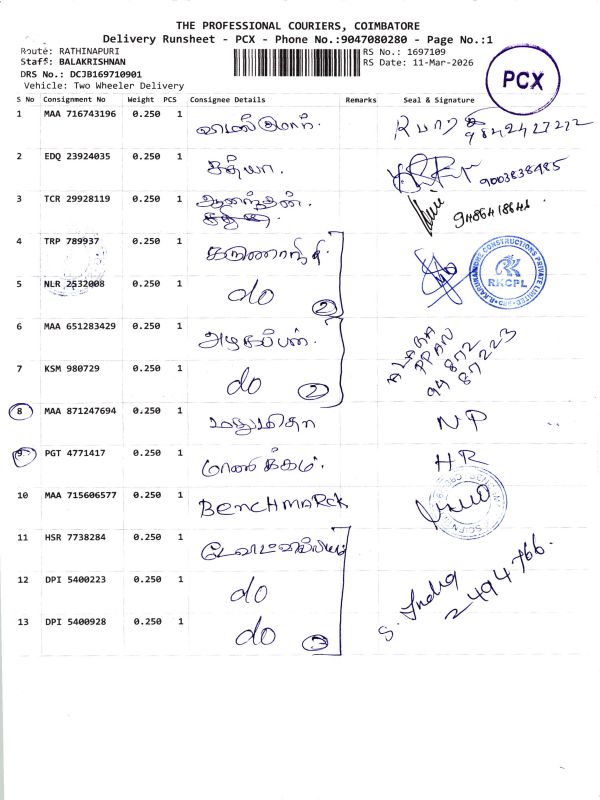 THE PROFESSIONAL COURIERS, COIMBATORE
Delivery Runsheet - PCX - Phone No.:9047080280 - Page No.:1
Route: RATHINAPURI
RS No.: 1697109
Staff: BALAKRISHNAN
RS Date: 11-Mar-2026
DRS No.: DCJB169710901
Vehicle: Two Wheeler Delivery
PCX
S No Consignment No Weight PCS Consignee Details Remarks Seal & Signature
1 MAA 716743196 0.250 1 9842427272
2 EDQ 23924035 0.250 1 சத்யா. 9003838485
3 TCR 29928119 0.250 1 ஆனந்தன்.
4 TRP 789937 0.250 1
5 NLR 2532008 0.250 1 do 2
RKCPL
6 MAA 651283429 0.250 1 அழகப்பன். ALAGA PPAN
7 KSM 980729 0.250 1 do 2 94 872 87223
8 MAA 871247694 0.250 1 மதுமிதா NP
9 PGT 4771417 0.250 1 மாணிக்கம். HR
10 MAA 715606577 0.250 1 BENCHMARCK
11 HSR 7738284 0.250 1
12 DPI 5400223 0.250 1 do S. Indra 2494766.
13 DPI 5400928 0.250 1 do 3